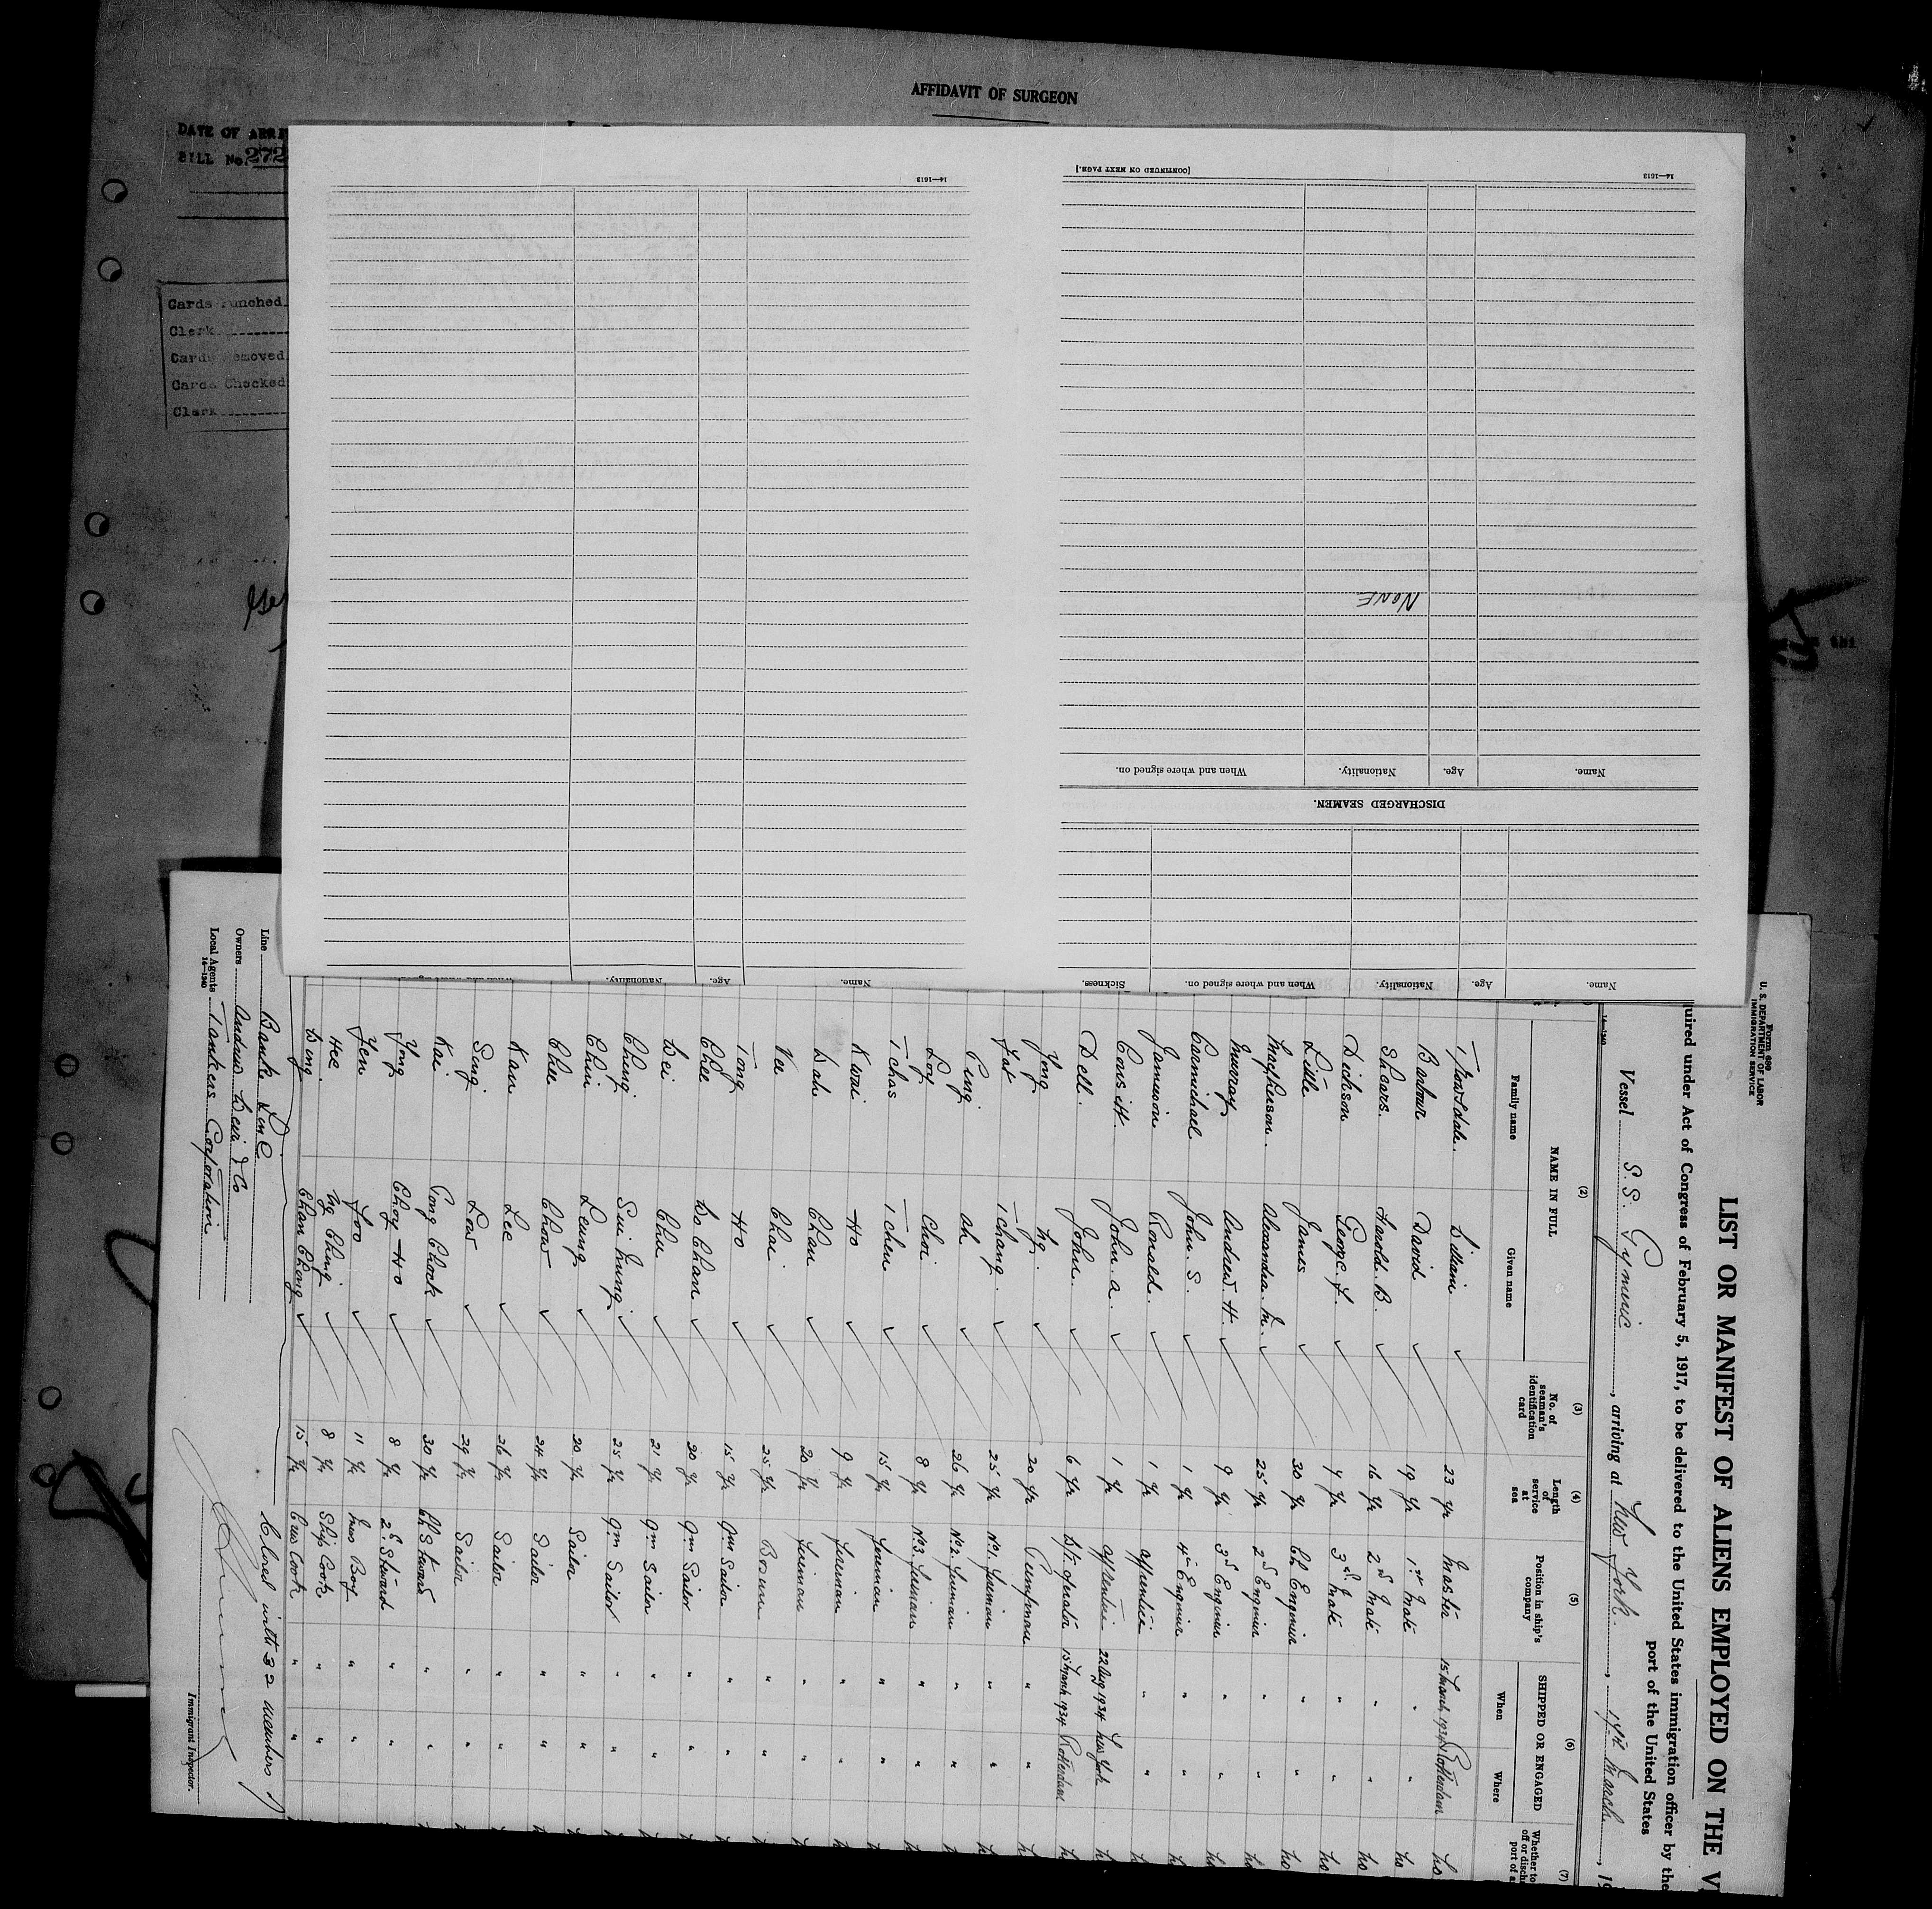 AFFIDAVIT OF SURGEON
DATE OF
BILL No. 272
Cards Punched
Clerk
Cards Removed
Cards Checked
Clerk
Name. Age. Nationality. When and where signed on. Sickness.
DISCHARGED SEAMEN.
Name. Age. Nationality. When and where signed on.
NONE
[CONTINUED ON NEXT PAGE.]
14—1613
14—1613
Name. Age. Nationality.
Form 689
U. S. DEPARTMENT OF LABOR
IMMIGRATION SERVICE
LIST OR MANIFEST OF ALIENS EMPLOYED ON THE V
quired under Act of Congress of February 5, 1917, to be delivered to the United States immigration officer by the
port of the United States
Vessel S.S. Gymeric, arriving at New York, 17th March, 19
14—1240
(2) (3) (4) (5) (6) (7)
NAME IN FULL
Family name Given name
No. of seaman's identification card
Length of service at sea
Position in ship's company
SHIPPED OR ENGAGED
When Where
Whether to
off or disch
port of a
William 23 yr Master 15 March 1934 Rotterdam No
Barbour David 19 yr 1st Mate " " No
Shears Harold B. 16 yr 2nd Mate " " No
Dickson George F. 7 yr 3rd Mate " " No
Little James 30 yr Ch Engineer " " No
MacPherson Alexandra M. 25 yr 2nd Engineer " "
Murray Andrew H. 9 yr 3rd Engineer " "
Carmichael John S. 1 yr 4th Engineer " "
Jamieson Ronald 1 yr apprentice " "
John A. 1 yr apprentice 22 Aug 1934 New York
Dell John 6 yr W/T. Operator 15 March 1934 Rotterdam
Yong Ng 20 yr Pumpman " "
Fat 25 yr No1. Fireman " "
Ping Ah 26 yr No2. Fireman " "
Loy Choi 8 yr No3. Fireman " "
15 yr Fireman " "
Kwai Ho 9 yr Fireman " "
Wah Chan 20 yr Fireman " "
Kee Chai 25 yr Bosun " "
Tong Ho 15 yr Qm Sailor " "
Chee Wo Chan 20 yr Qm Sailor " "
Wei Chu 21 yr Qm Sailor " "
Ching Sui Kung 25 yr Qm Sailor " "
Chin Leung 20 yr Sailor " "
Chee Chow 24 yr Sailor " "
Kan Lee 26 yr Sailor " "
Sung Low 29 yr Sailor " "
Kai Pong Chock 30 yr Ch Steward " "
Yong Choy Ho 8 yr 2nd Steward " "
Yen Foo 11 yr Mess Boy " "
Hee Ng Ching 8 yr Ships Cook " "
Wing Chan Chong 15 yr Crew Cook " "
Closed with 32 members
Line Bank Line
Owners Andrew Weir & Co
Local Agents Tankers Corporation
14—1240
Immigrant Inspector.